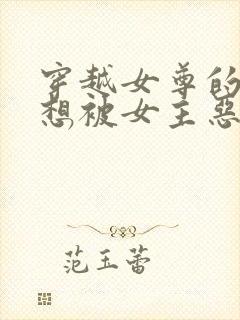 穿越女尊的
想被女主恶
范玉蕾